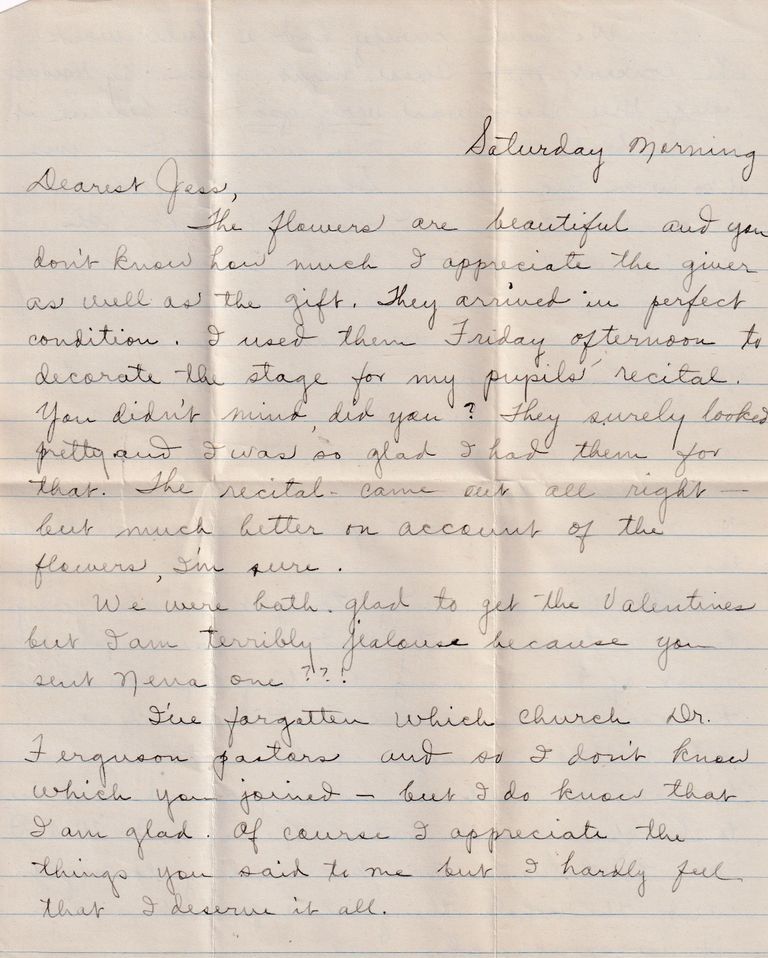 Saturday Morning
Dearest Jess,
The flowers are beautiful and you
don't know how much I appreciate the giver
as well as the gift. They arrived in perfect
condition. I used them Friday afternoon to
decorate the stage for my pupils' recital.
You didn't mind, did you? They surely looked
pretty and I was so glad I had them for
that. The recital - came out all right —
but much better on account of the
flowers, I'm sure.
We were both glad to get the Valentines
but I am terribly jealouse because you
sent Nena one ??!
I've forgotten which church Dr.
Ferguson pastors and so I don't know
which you joined — but I do know that
I am glad. Of course I appreciate the
things you said to me but I hardly feel
that I deserve it all.